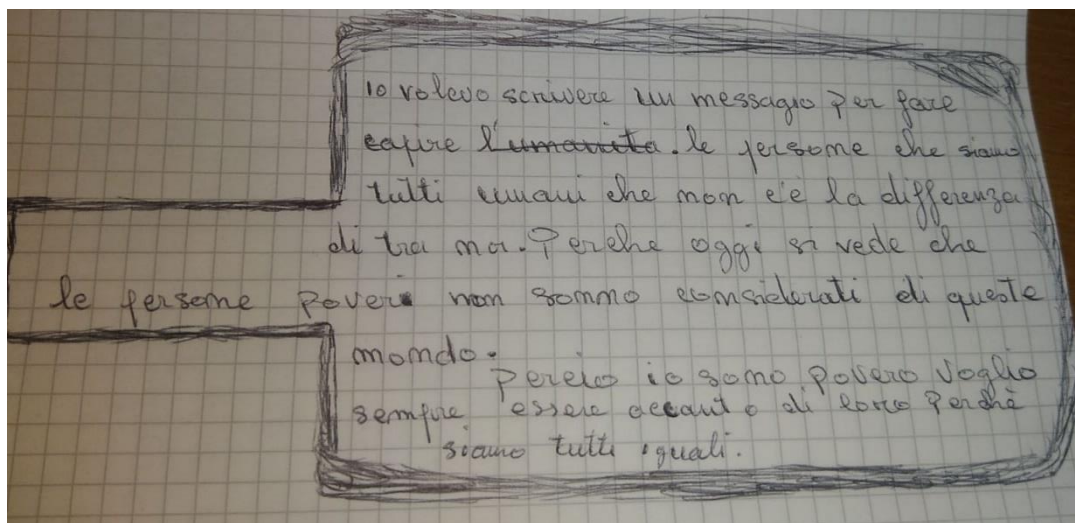 io volevo scrivere un messagio per fare
capire l'umanita. le persone che siamo
tutti umani che non c'è la differenza
di tra noi. Perche oggi si vede che
le persone poveri non sonno considerati di queste
mondo.
Percio io sono povero voglio
sempre essere accanto di loro Perchè
siamo tutti iguali.